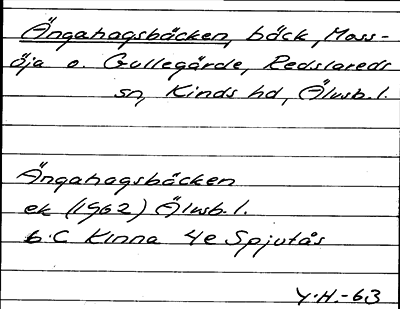 Ängahagsbäcken, bäck, Moss-
öja o. Gullegärde, Redslareds
sn, Kinds hd, Älvsb.l.
Ängahagsbäcken
ek (1962) Älvsb.l.
6 C Kinna 4e Spjutås
Y.H.-63